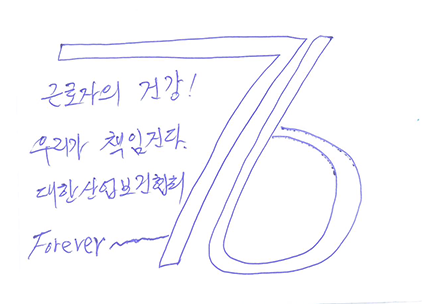 76
근로자의 건강!
우리가 책임진다.
대한산업보건협회
Forever